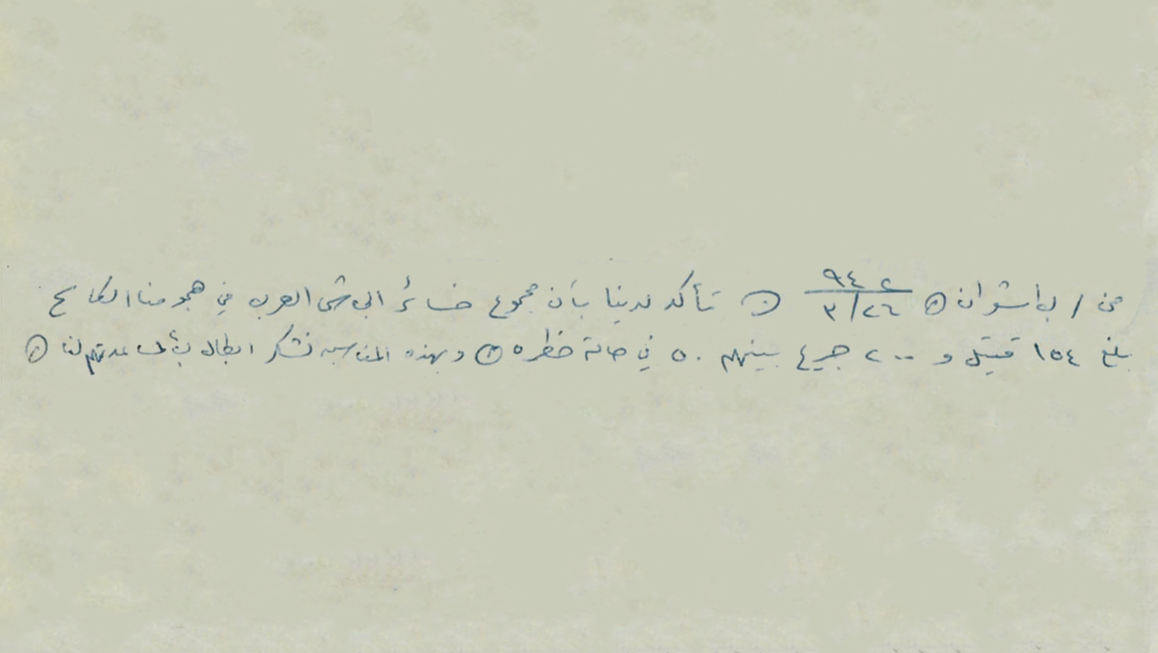 من / ب أشوان ⊙ ٩٤٢ ٢٦/٣ ⊙ تأكد لدينا بأن مجموع خسائر الى شى العرب في هجومنا الكاسح
بلغ ١٥٤ قتيل و ٢٠٠ جريح بينهم ٥٠ في حالة خطره ⊙ وبهذه المناسبه نشكر ابطال لنا ⊙